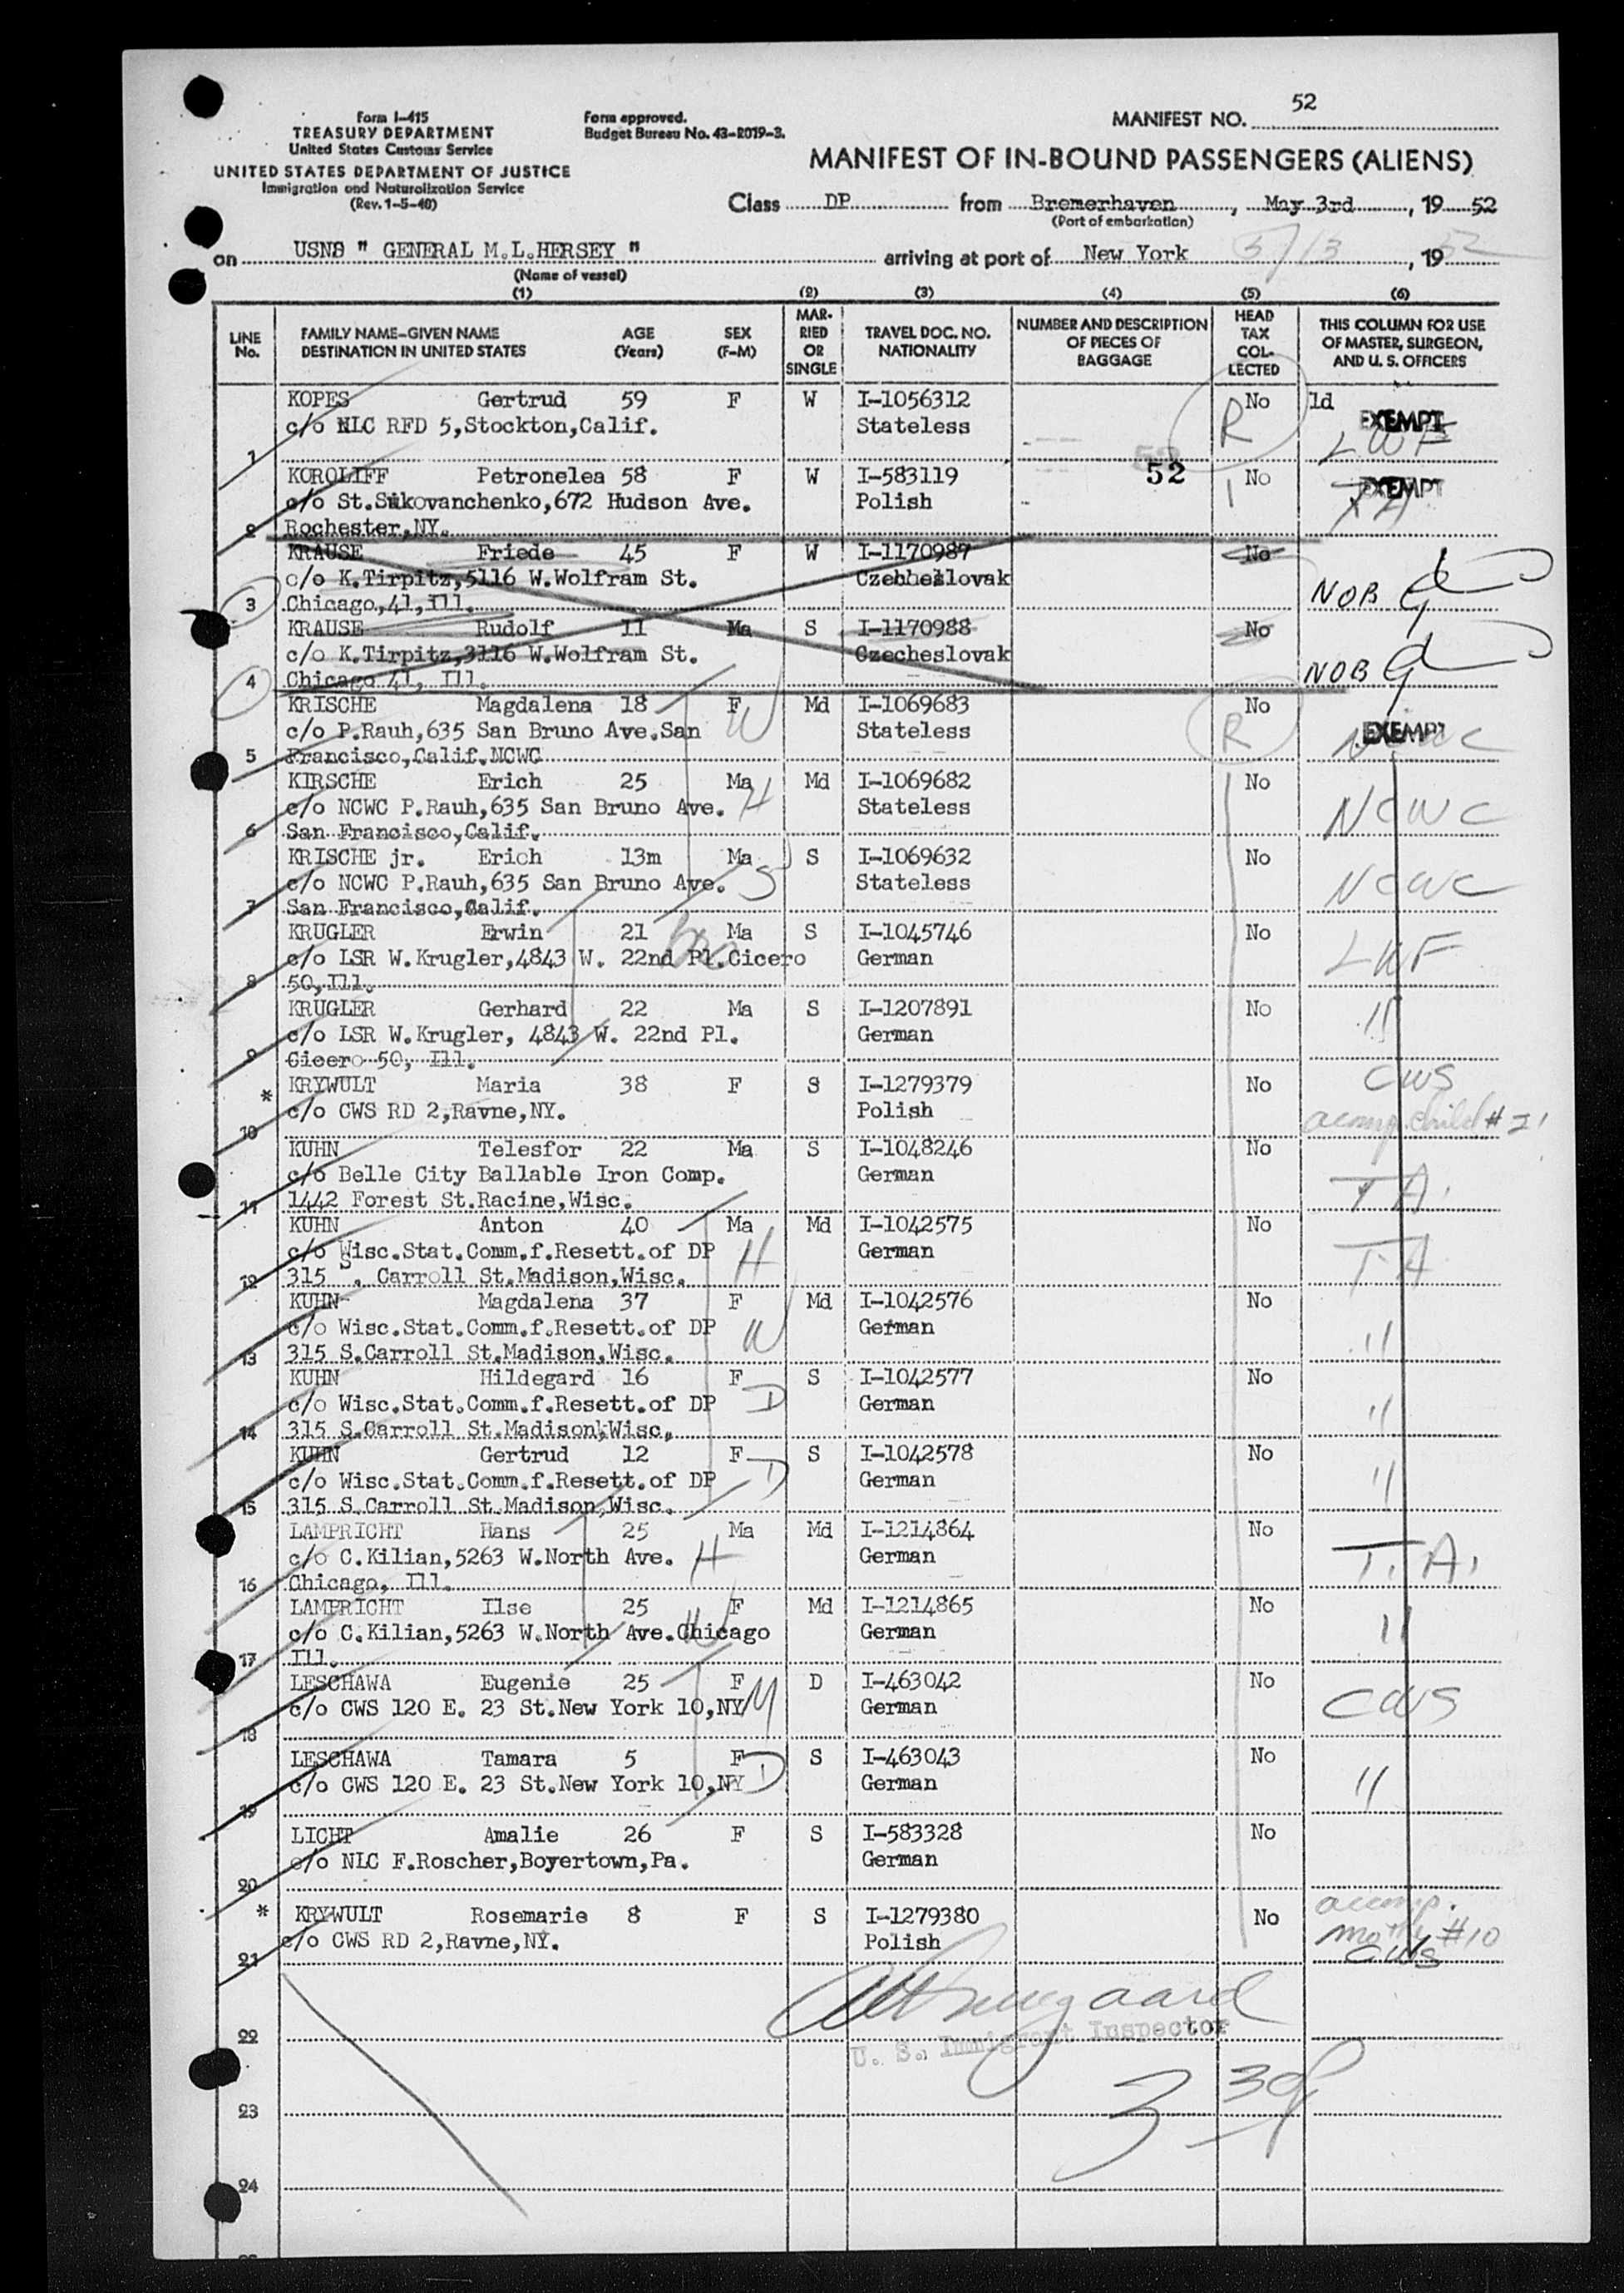 52
Form I-415
TREASURY DEPARTMENT
United States Customs Service
UNITED STATES DEPARTMENT OF JUSTICE
Immigration and Naturalization Service
(Rev. 1-5-48)
Form approved.
Budget Bureau No. 43-R019-3.
MANIFEST NO.
MANIFEST OF IN-BOUND PASSENGERS (ALIENS)
Class DP from Bremerhaven, May 3rd, 19 52
(Port of embarkation)
on USNS " GENERAL M.L.HERSEY " arriving at port of New York 5/13, 19 52
(Name of vessel)
(1) (2) (3) (4) (5) (6)
LINE No. FAMILY NAME—GIVEN NAME DESTINATION IN UNITED STATES AGE (Years) SEX (F-M) MARRIED OR SINGLE TRAVEL DOC. NO. NATIONALITY NUMBER AND DESCRIPTION OF PIECES OF BAGGAGE HEAD TAX COLLECTED THIS COLUMN FOR USE OF MASTER, SURGEON, AND U. S. OFFICERS
KOPES Gertrud 59 F W I-1056312 No 1d EXEMPT
c/o NLC RFD 5,Stockton,Calif. Stateless R LWF
1
KOROLIFF Petronelea 58 F W I-583119 52 No EXEMPT
c/o St.Sukovanchenko,672 Hudson Ave. Polish TA
2 Rochester,NY.
KRAUSE Friede 45 F W I-1170987 No
c/o K.Tirpitz,5116 W.Wolfram St. Czecheslovak NOB
3 Chicago,41,Ill.
KRAUSE Rudolf 11 Ma S I-1170988 No
c/o K.Tirpitz,3116 W.Wolfram St. Czecheslovak NOB
4 Chicago 41, Ill.
KRISCHE Magdalena 18 F Md I-1069683 No EXEMPT
c/o P.Rauh,635 San Bruno Ave.San W Stateless R NCWC
5 Francisco,Calif.NCWC
KIRSCHE Erich 25 Ma Md I-1069682 No
c/o NCWC P.Rauh,635 San Bruno Ave. H Stateless NCWC
6 San Francisco,Calif.
KRISCHE jr. Erich 13m Ma S I-1069632 No
c/o NCWC P.Rauh,635 San Bruno Ave. S Stateless NCWC
7 San Francisco,Calif.
KRUGLER Erwin 21 Ma S I-1045746 No
c/o LSR W.Krugler,4843 W. 22nd Pl.Cicero German LWF
8 50,Ill.
KRUGLER Gerhard 22 Ma S I-1207891 No
c/o LSR W.Krugler, 4843 W. 22nd Pl. German "
9 Cicero 50, Ill.
* KRYWULT Maria 38 F S I-1279379 No CWS
c/o CWS RD 2,Ravne,NY. Polish acomp. child #21
10
KUHN Telesfor 22 Ma S I-1048246 No
c/o Belle City Ballable Iron Comp. German TA.
11 1442 Forest St.Racine,Wisc.
KUHN Anton 40 Ma Md I-1042575 No
c/o Wisc.Stat.Comm.f.Resett.of DP H German TA
12 315 S. Carroll St.Madison,Wisc.
KUHN Magdalena 37 F Md I-1042576 No
c/o Wisc.Stat.Comm.f.Resett.of DP W German "
13 315 S.Carroll St.Madison,Wisc.
KUHN Hildegard 16 F S I-1042577 No
c/o Wisc.Stat.Comm.f.Resett.of DP D German "
14 315 S.Carroll St.Madison,Wisc,
KUHN Gertrud 12 F S I-1042578 No
c/o Wisc.Stat.Comm.f.Resett.of DP D German "
15 315 S.Carroll St.Madison,Wisc.
LAMPRICHT Hans 25 Ma Md I-1214864 No
c/o C.Kilian,5263 W.North Ave. H German T.A.
16 Chicago, Ill.
LAMPRICHT Ilse 25 F Md I-1214865 No
c/o C.Kilian,5263 W.North Ave.Chicago W German "
17 Ill.
LESCHAWA Eugenie 25 F D I-463042 No
c/o CWS 120 E. 23 St.New York 10,NY M German CWS
18
LESCHAWA Tamara 5 F S I-463043 No
c/o CWS 120 E. 23 St.New York 10,NY D German "
19
LICHT Amalie 26 F S I-583328 No
c/o NLC F.Roscher,Boyertown,Pa. German
20
* KRYWULT Rosemarie 8 F S I-1279380 No acomp.
c/o CWS RD 2,Ravne,NY. Polish mother #10
21 CWS
22
U. S. Immigrant Inspector
23
24